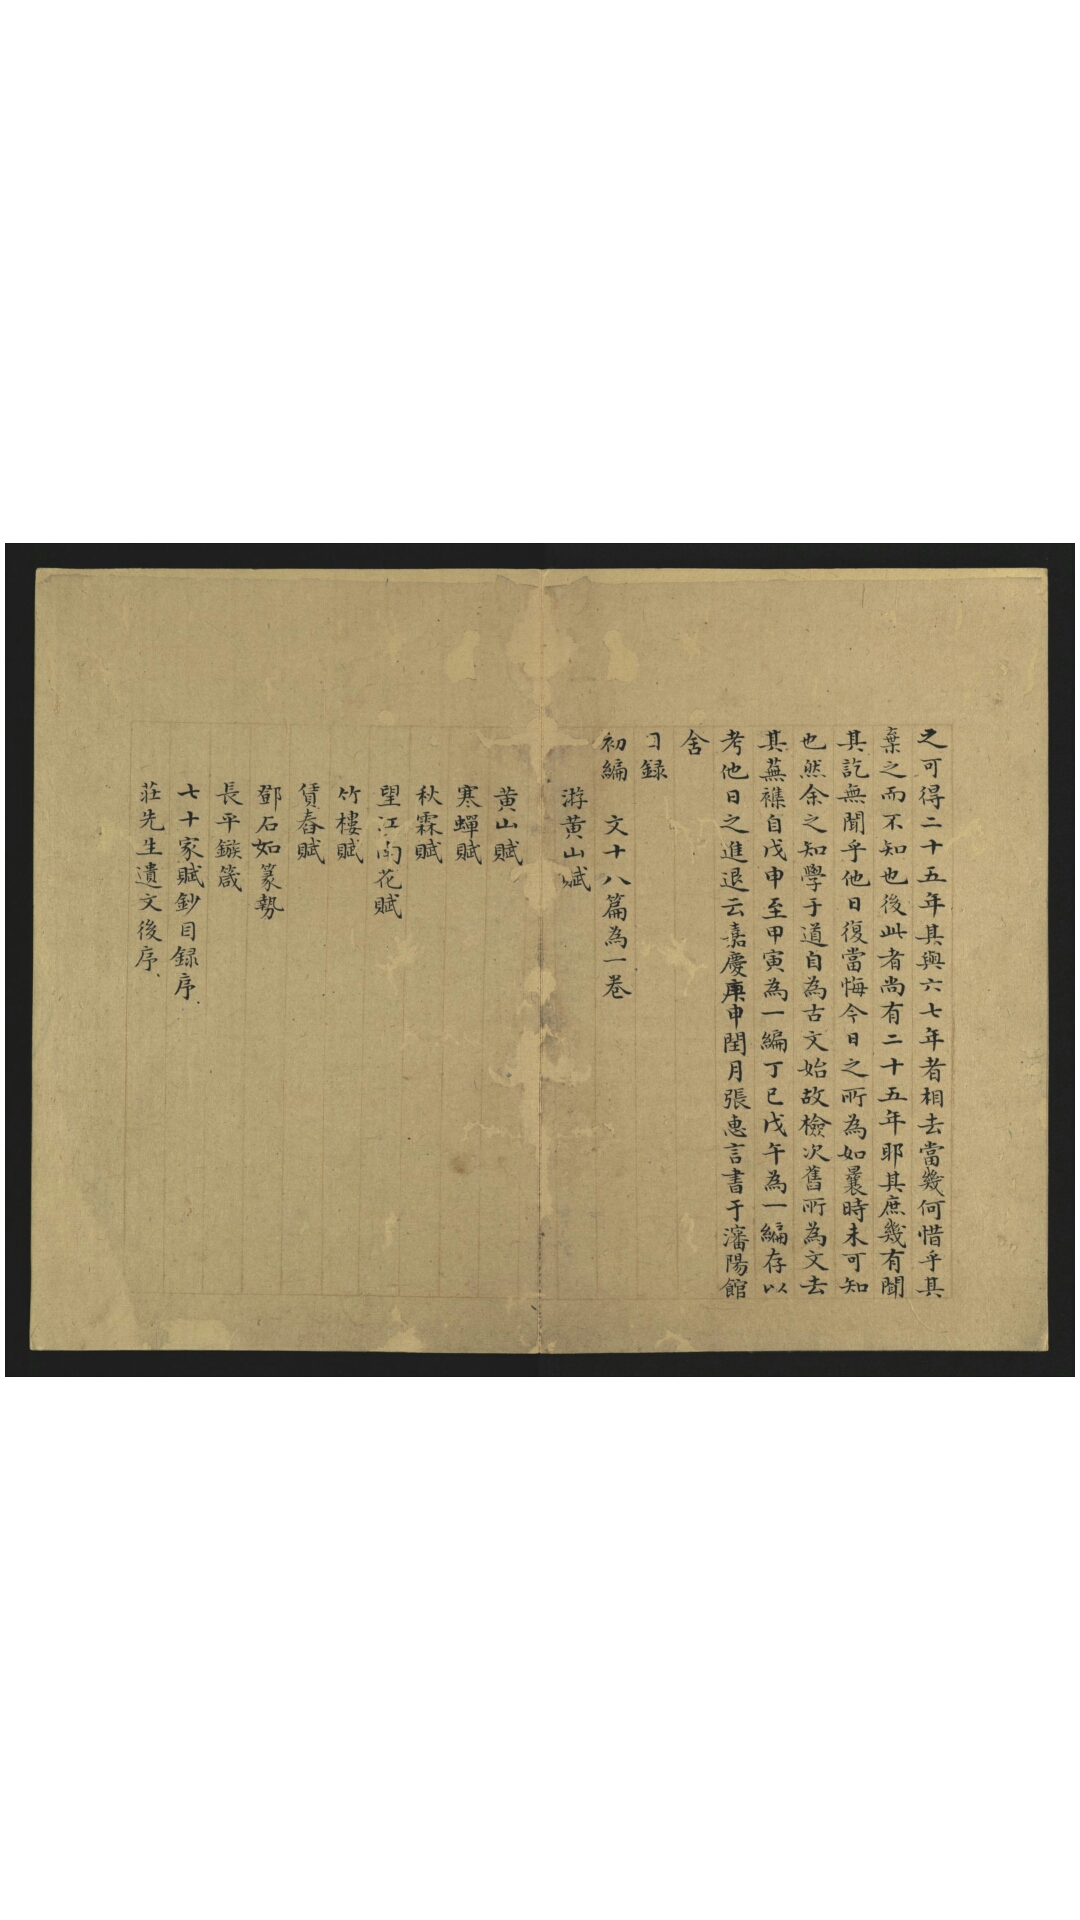 之可得二十五年其與六七年者相去當幾何惜乎其
棄之而不知也後此者尚有二十五年耶其庶幾有聞
其訖無聞乎他日復當悔今日之所為如曩時未可知
也然余之知學于道自為古文始故檢次舊所為文去
其蕪襍自戊申至甲寅為一編丁巳戊午為一編存以
考他日之進退云嘉慶庚申閏月張惠言書于瀋陽館
舍
目録
初編 文十八篇為一卷
游黃山賦
黃山賦
寒蟬賦
秋霖賦
望江南花賦
竹樓賦
賃舂賦
鄧石如篆勢
長平鏃箴
七十家賦鈔目録序
莊先生遺文後序